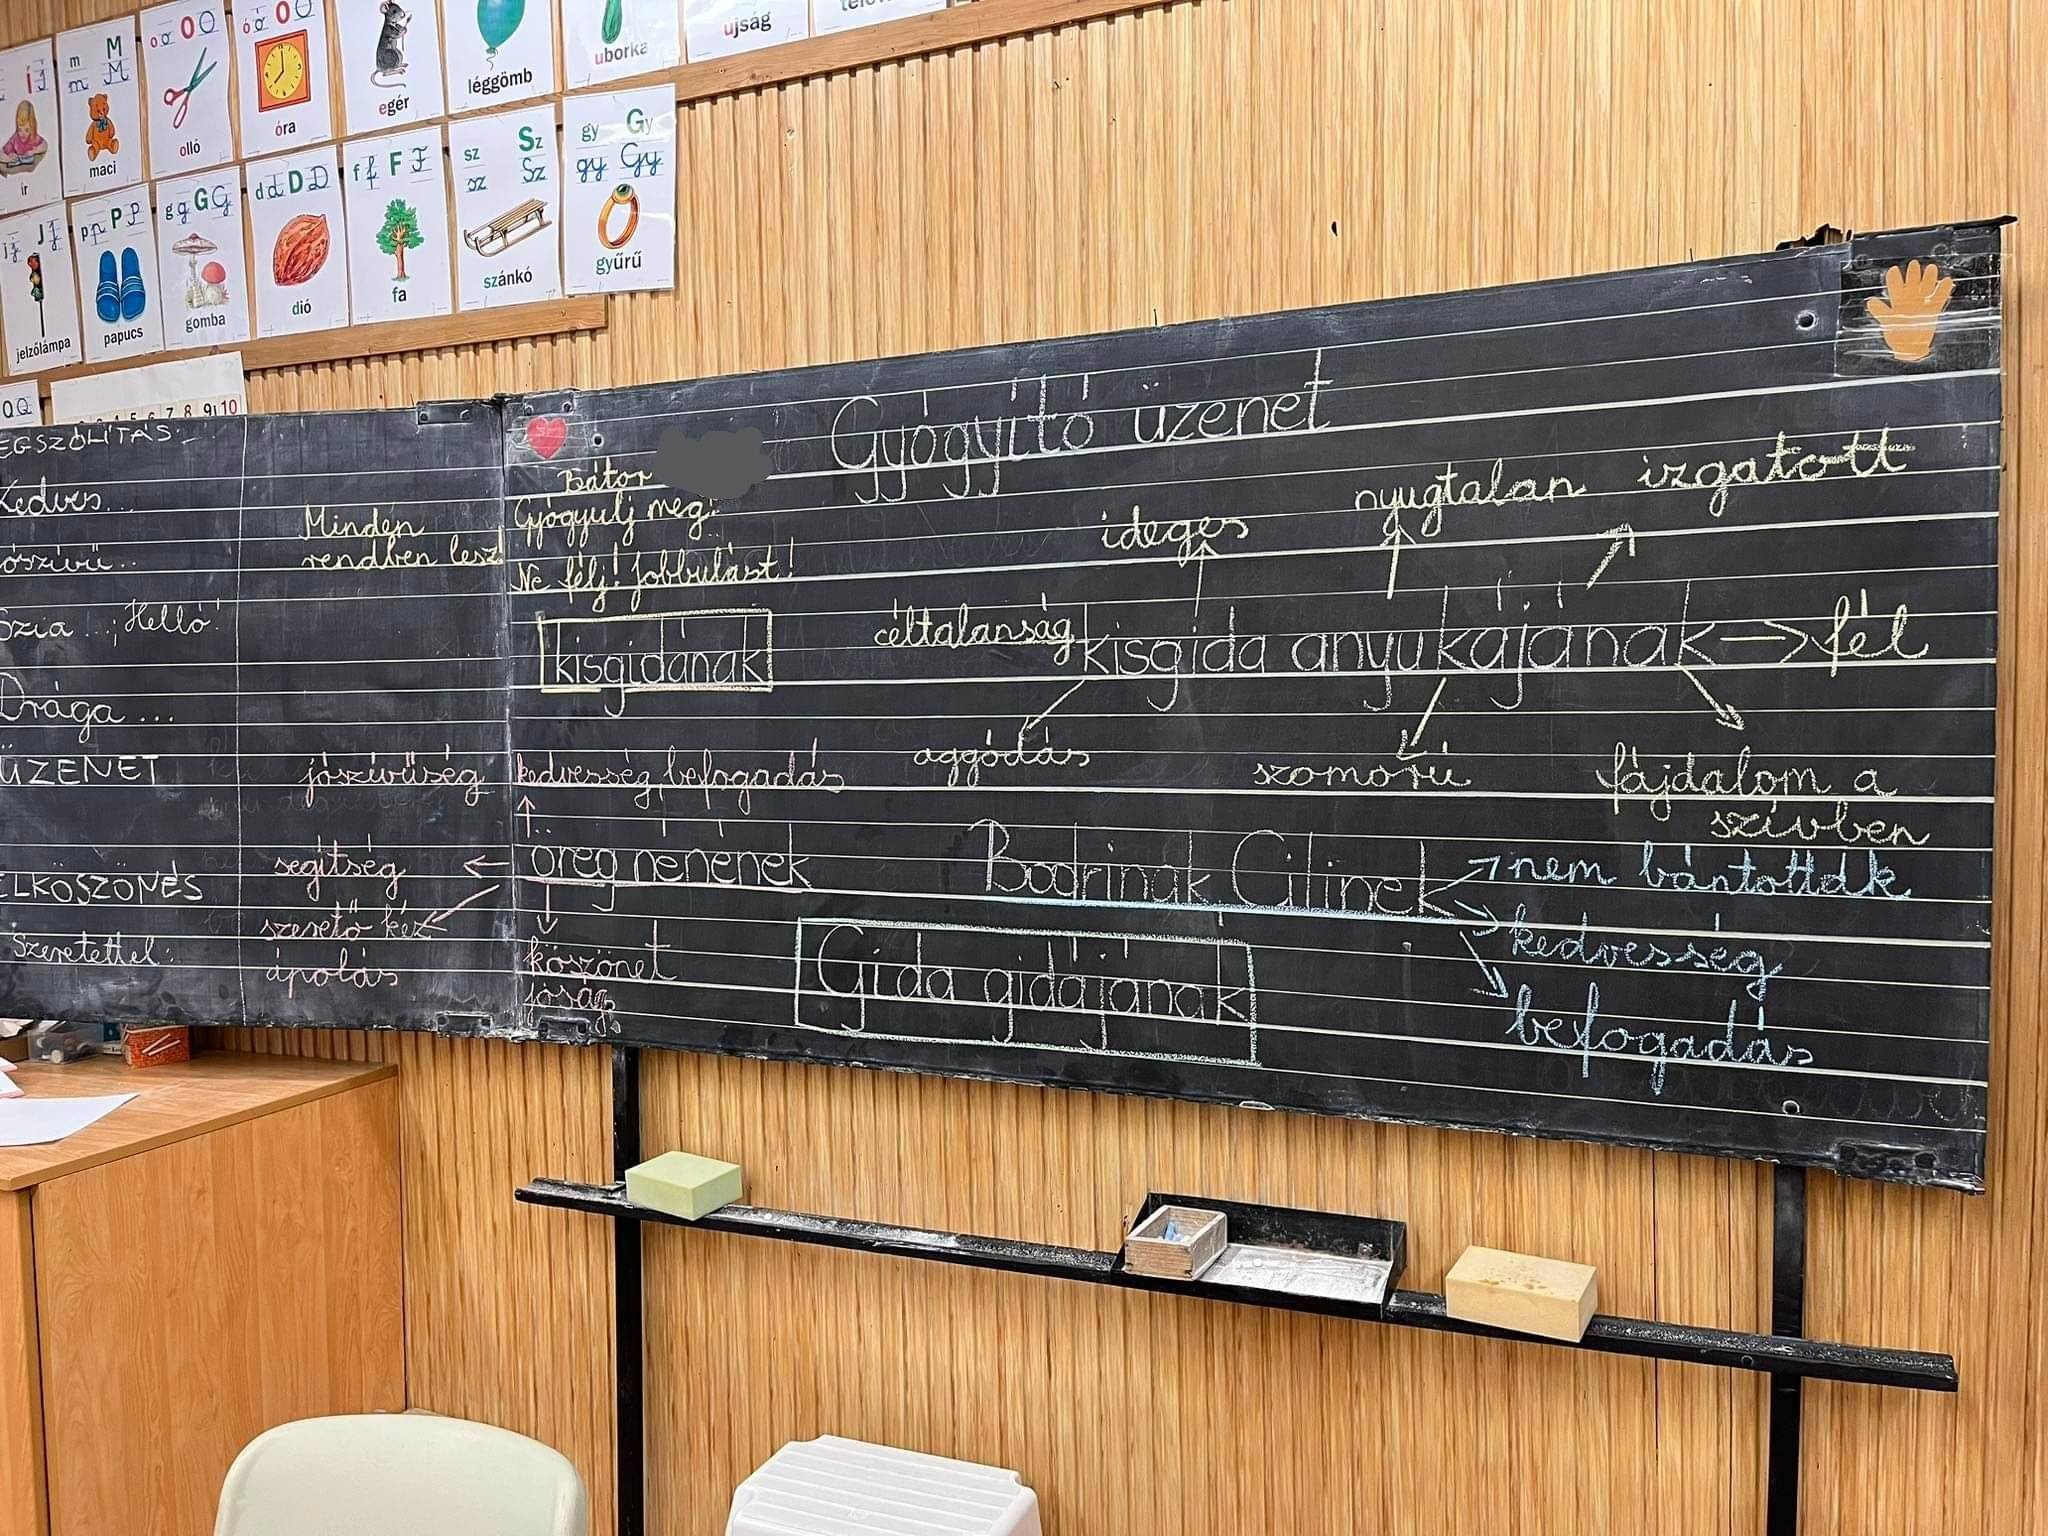 o σ O O
ó ó O O
M
m m M
í I
ír
maci
olló
óra
egér
léggömb
uborka
újság
j j J J
p p P P
g g G G
d d D D
f f F F
sz Sz
sz Sz
gy Gy
gy Gy
jelzőlámpa
papucs
gomba
dió
fa
szánkó
gyűrű
Q Q
4 5 6 7 8 9 10
EGSZÓLÍTÁS:
Kedves...
ószívű..
Szia...; Helló!
Drága...
ÜZENET
ELKÖSZÖNÉS
Szeretettel:
Minden
rendben lesz!
jószívűség
segítség
szerető kéz
ápolás
Gyógyító üzenet
Bátor
Gyógyulj meg!
Ne félj! Jobbulást!
kisgidának
ideges
nyugtalan
izgatott
céltalanság
kisgida anyukájának
fél
aggódás
szomorú
fájdalom a
szívben
kedvesség, befogadás
öreg nénének
köszönet
jóság
Bodrinak Cilinek
nem bántották
kedvesség
befogadás
Gida gidájának